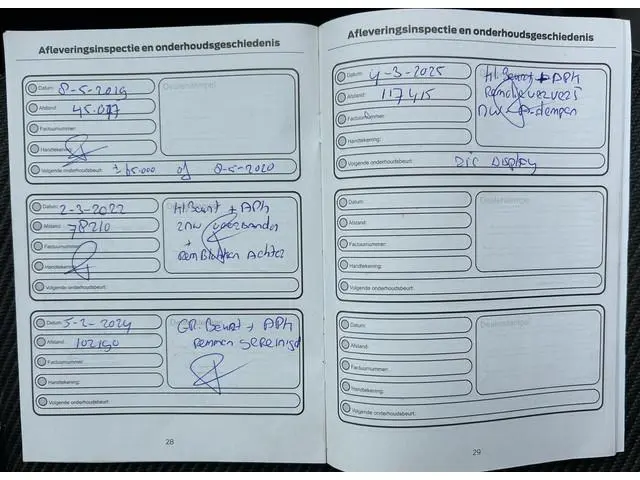 Afleveringsinspectie en onderhoudsgeschiedenis
Datum: 8-5-2019
Dealerstempel
Afstand: 45.077
Factuurnummer:
Handtekening:
Volgende onderhoudsbeurt: ± 65.000 of 8-5-2020
Datum: 2-3-2022
Afstand: 78210
Factuurnummer:
Handtekening:
Kl. Beurt + APK
2 nw voorbanden
+
Remblokken Achter
Volgende onderhoudsbeurt:
Datum: 5-2-2024
Afstand: 102190
Factuurnummer:
Handtekening:
GR. Beurt + APK
remmen gereinigd
Volgende onderhoudsbeurt:
28
Afleveringsinspectie en onderhoudsgeschiedenis
Datum: 4-3-2025
Afstand: 117415
Factuurnummer:
Handtekening:
Kl. Beurt + APK
Remolie ververst
nw
Volgende onderhoudsbeurt: Zie Display
Datum:
Dealerstempel
Afstand:
Factuurnummer:
Handtekening:
Volgende onderhoudsbeurt:
Datum:
Dealerstempel
Afstand:
Factuurnummer:
Handtekening:
Volgende onderhoudsbeurt:
29